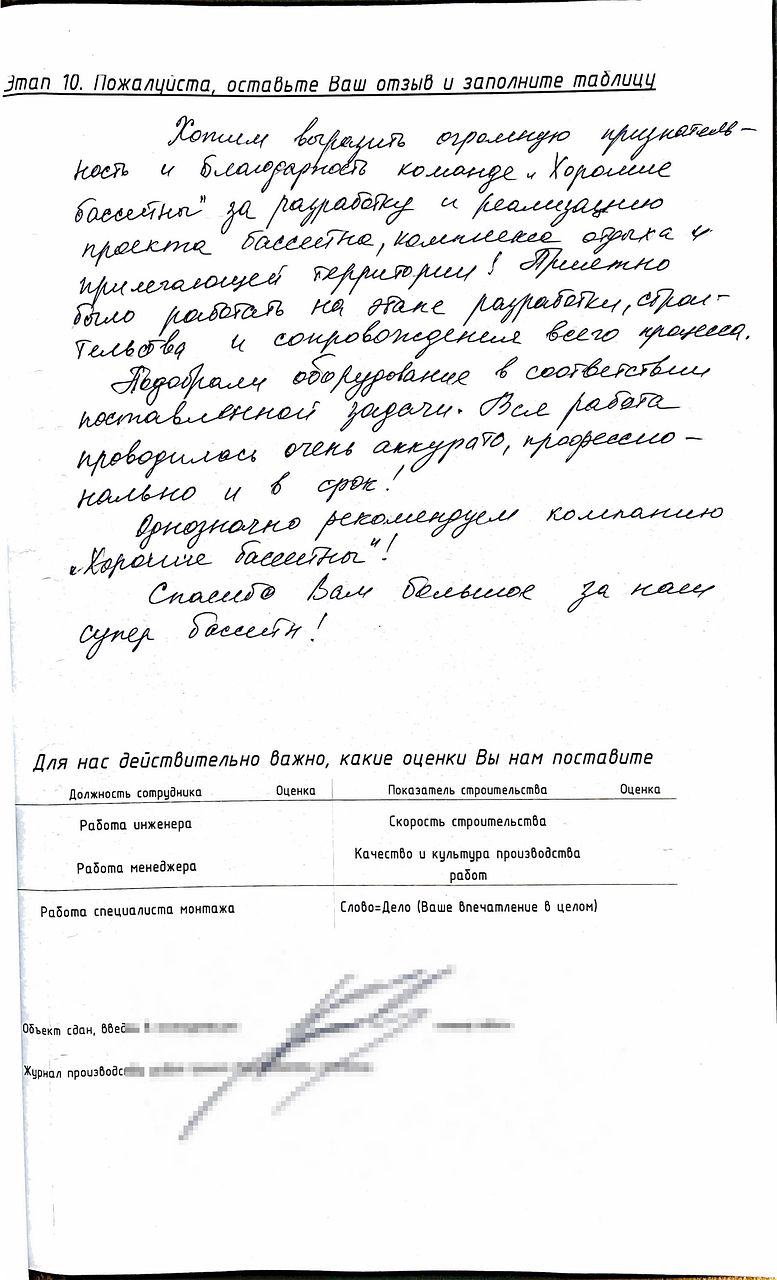 Этап 10. Пожалуйста, оставьте Ваш отзыв и заполните таблицу
Хотим выразить огромную признатель-
ность и благодарность команде „Хорошие
бассейны" за разработку и реализацию
проекта бассейна, комплекса отдыха и
прилегающей территории! Приятно
было работать на этапе разработки, строи-
тельства и сопровождения всего процесса.
Подобрали оборудование в соответствии
поставленной задачи. Вся работа
проводилась очень аккурато, профессио-
нально и в срок!
Однозначно рекомендуем компанию
„Хорошие бассейны"!
Спасибо Вам большое за наш
супер бассейн!
Для нас действительно важно, какие оценки Вы нам поставите
Должность сотрудника Оценка Показатель строительства Оценка
Работа инженера Скорость строительства
Работа менеджера Качество и культура производства
работ
Работа специалиста монтажа Слово=Дело (Ваше впечатление в целом)
Объект сдан,
Журнал